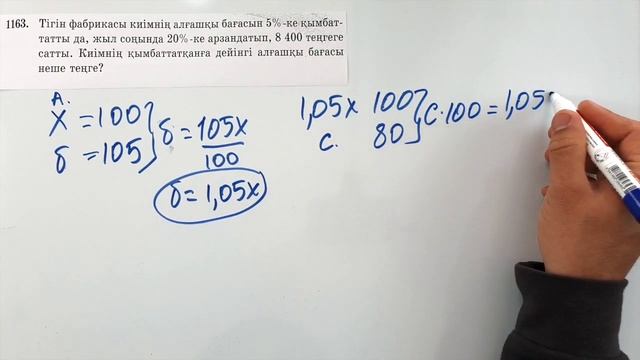 1163. Тігін фабрикасы киімнің алғашқы бағасын 5%-ке қымбат-
татты да, жыл соңында 20%-ке арзандатып, 8 400 теңгеге
сатты. Киімнің қымбаттатқанға дейінгі алғашқы бағасы
неше теңге?
А.
x = 100
δ = 105
δ = 105x
100
δ = 1,05x
1,05x 100
с. 80
с·100 = 1,05